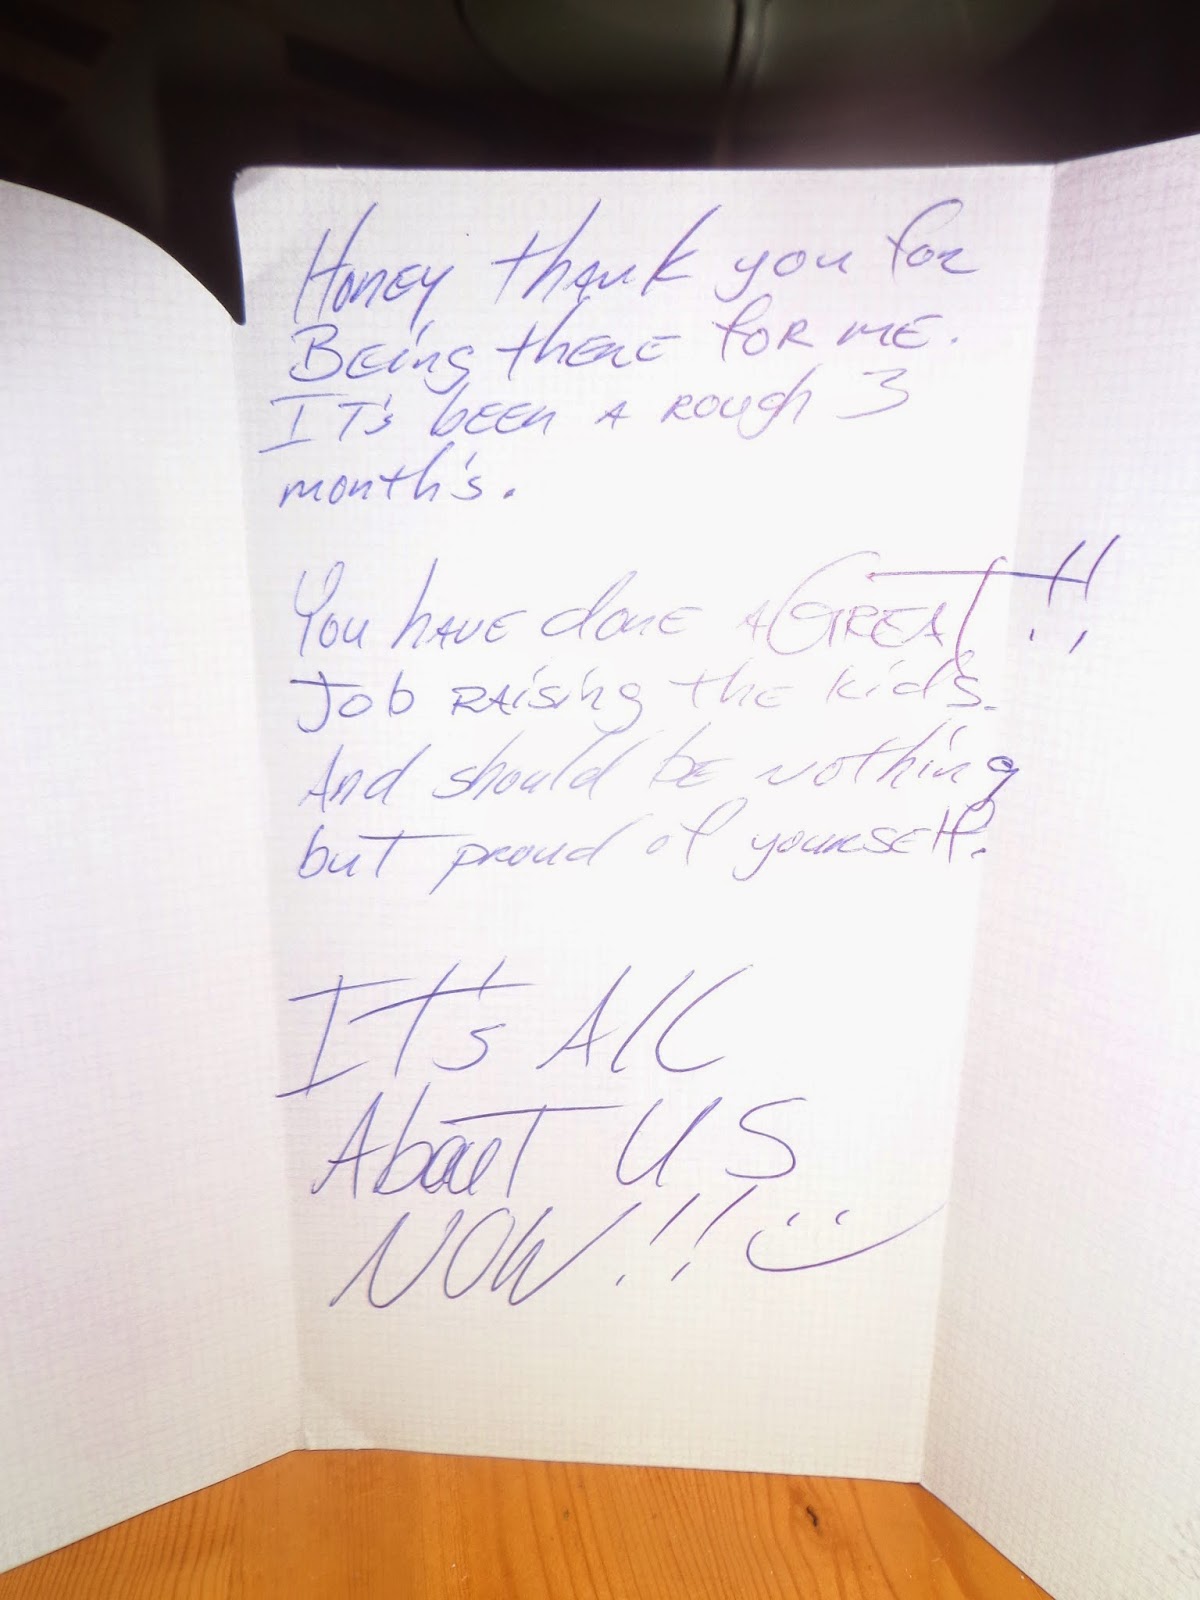 Honey thank you for
Being there for me.
IT's been A rough 3
month's.
You have done A GREAT!!
Job raising the kids.
And should be nothing
but proud of yourself.
IT's All
About US
NOW!! :)